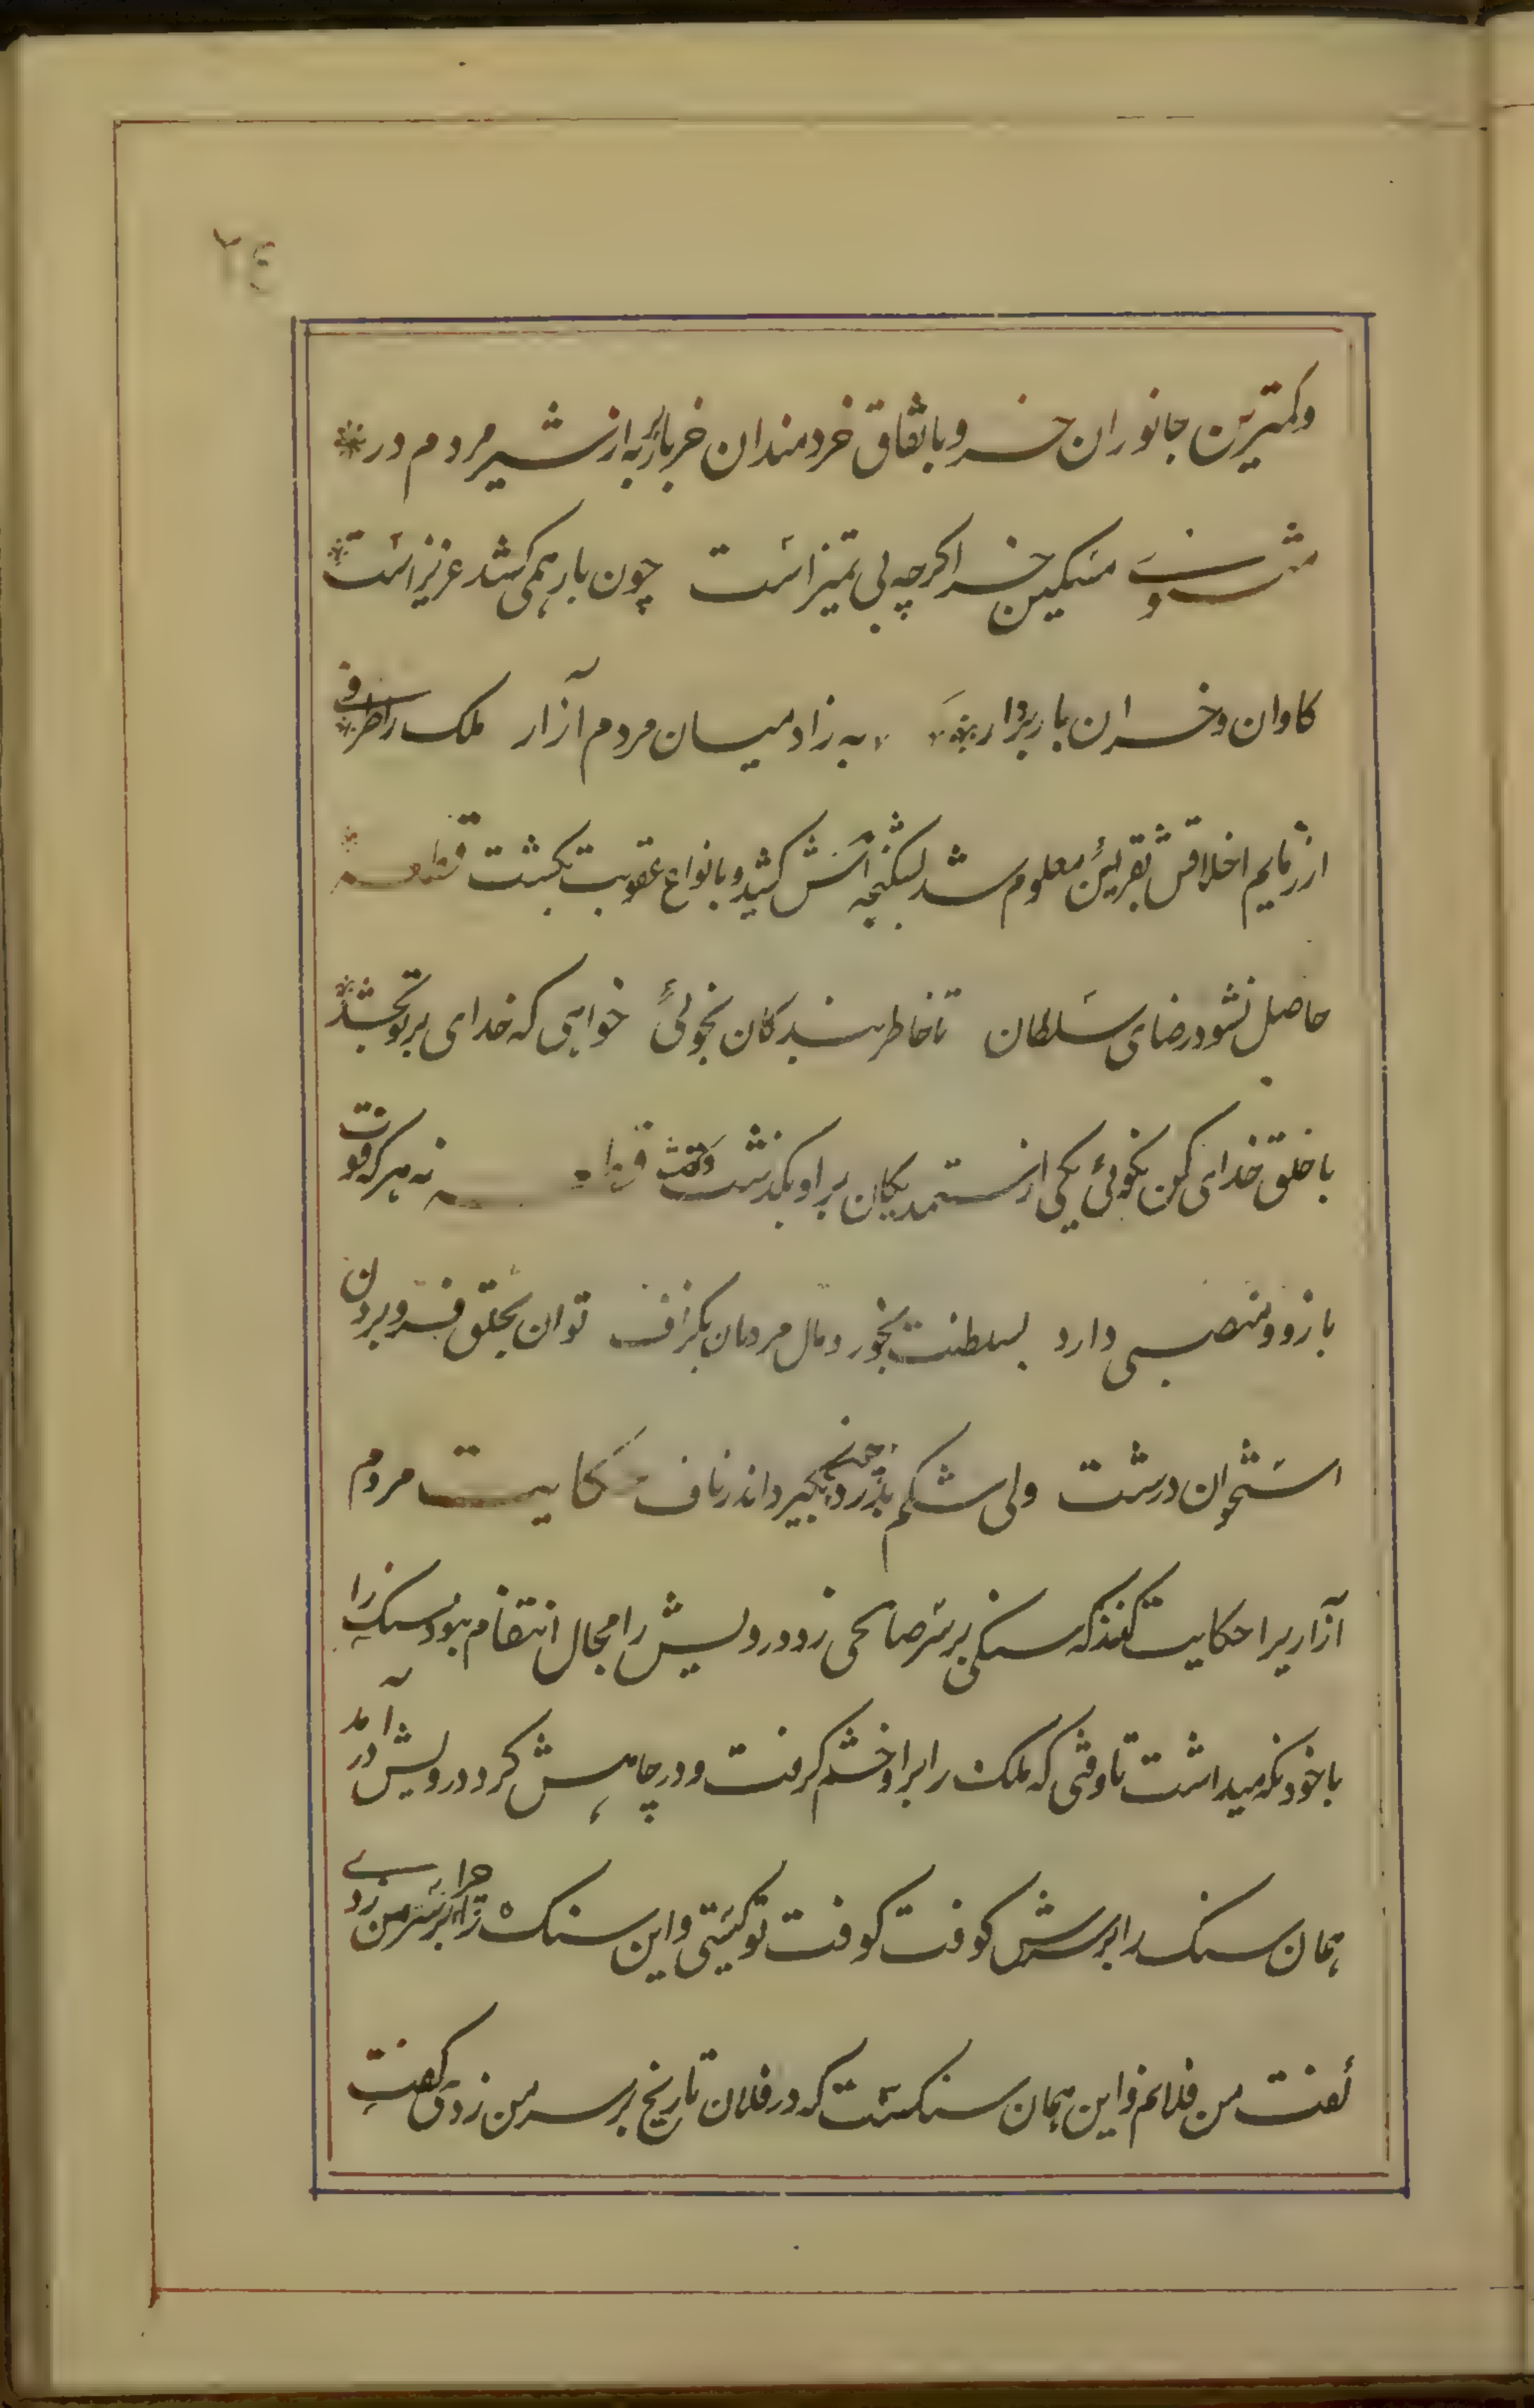 ٢٤
وکمترین جانوران خر و باتفاق خردمندان خر باربر به از شیر مردم در
مثنوی مسکین خر اکرچه بی تمیز است چون بار همی کشد عزیز است
کاوان و خران بار بردار به ز ادمیان مردم آزار ملک را طرفی
از زمایم اخلاقش بقرائن معلوم شد بشکنجه اش کشید و بانواع عقوبت بکشت قطعه
حاصل نشود رضای سلطان تا خاطر بندکان نجوئی خواهی که خدای بر تو بخشد
با خلق خدای کن نکوئی یکی از ستمدیکان بر او بکذشت وکفت قطعه نه هر که قوت
بازو و منصبی دارد بسلطنت بخورد مال مردمان بکزاف توان بحلق فرو بردن
استخوان درشت ولی شکم بدرد چون بکیرد اندر ناف حکایت مردم
آزاریرا حکایت کنند که سنکی بر سر صالحی زد و درویش را مجال انتقام نبود سنک را
با خود نکه میداشت تا وقتی که ملک را بر او خشم کرفت و در چاهش کرد درویش در آمد
همان سنک را بر سرش کوفت کوفت تو کیستی و این سنک چرا بر سر من زدی
کفت من فلانم و این همان سنکست که در فلان تاریخ بر سر من زدی کفت